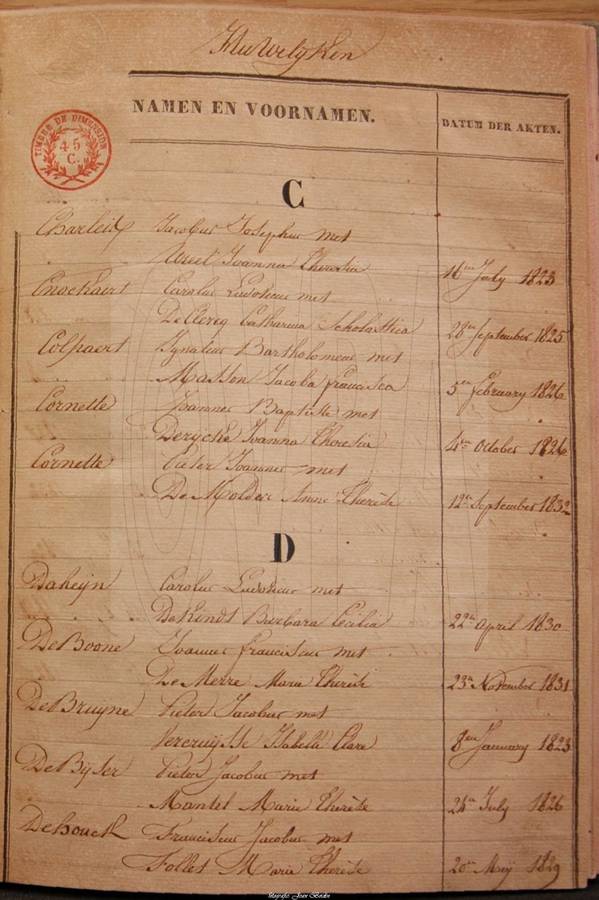 Huwelyken
TIMBRE DE DIMENSION
45
C.
NAMEN EN VOORNAMEN.
DATUM DER AKTEN.
C
Jacobus Josephus met
Joanna Theresia 16en July 1823
Carolus Ludovicus met
De Clercq Catharina Scholastica 28en September 1825
Colpaert Ignatius Bartholomeus met
Masson Jacoba francisca 5en february 1826
Cornette Joannes Baptiste met
Derycke Joanna Theresia 4en October 1826
Cornette Pieter Joannes met
De Molder Anne Therese 12en September 1832
D
Daheijn Carolus Ludovicus met
DeKindt Barbara Cecilia 22en April 1830
DeBoone Joannes franciscus met
DeMerre Marie Therese 23en November 1831
DeBruyne Pieter Jacobus met
Vercruysse Isabelle Clare 8en January 1823
DeBijser Pieter Jacobus met
Mantel Marie Therese 24en July 1826
Franciscus Jacobus met
Follet Marie Therese 20en Meij 1829